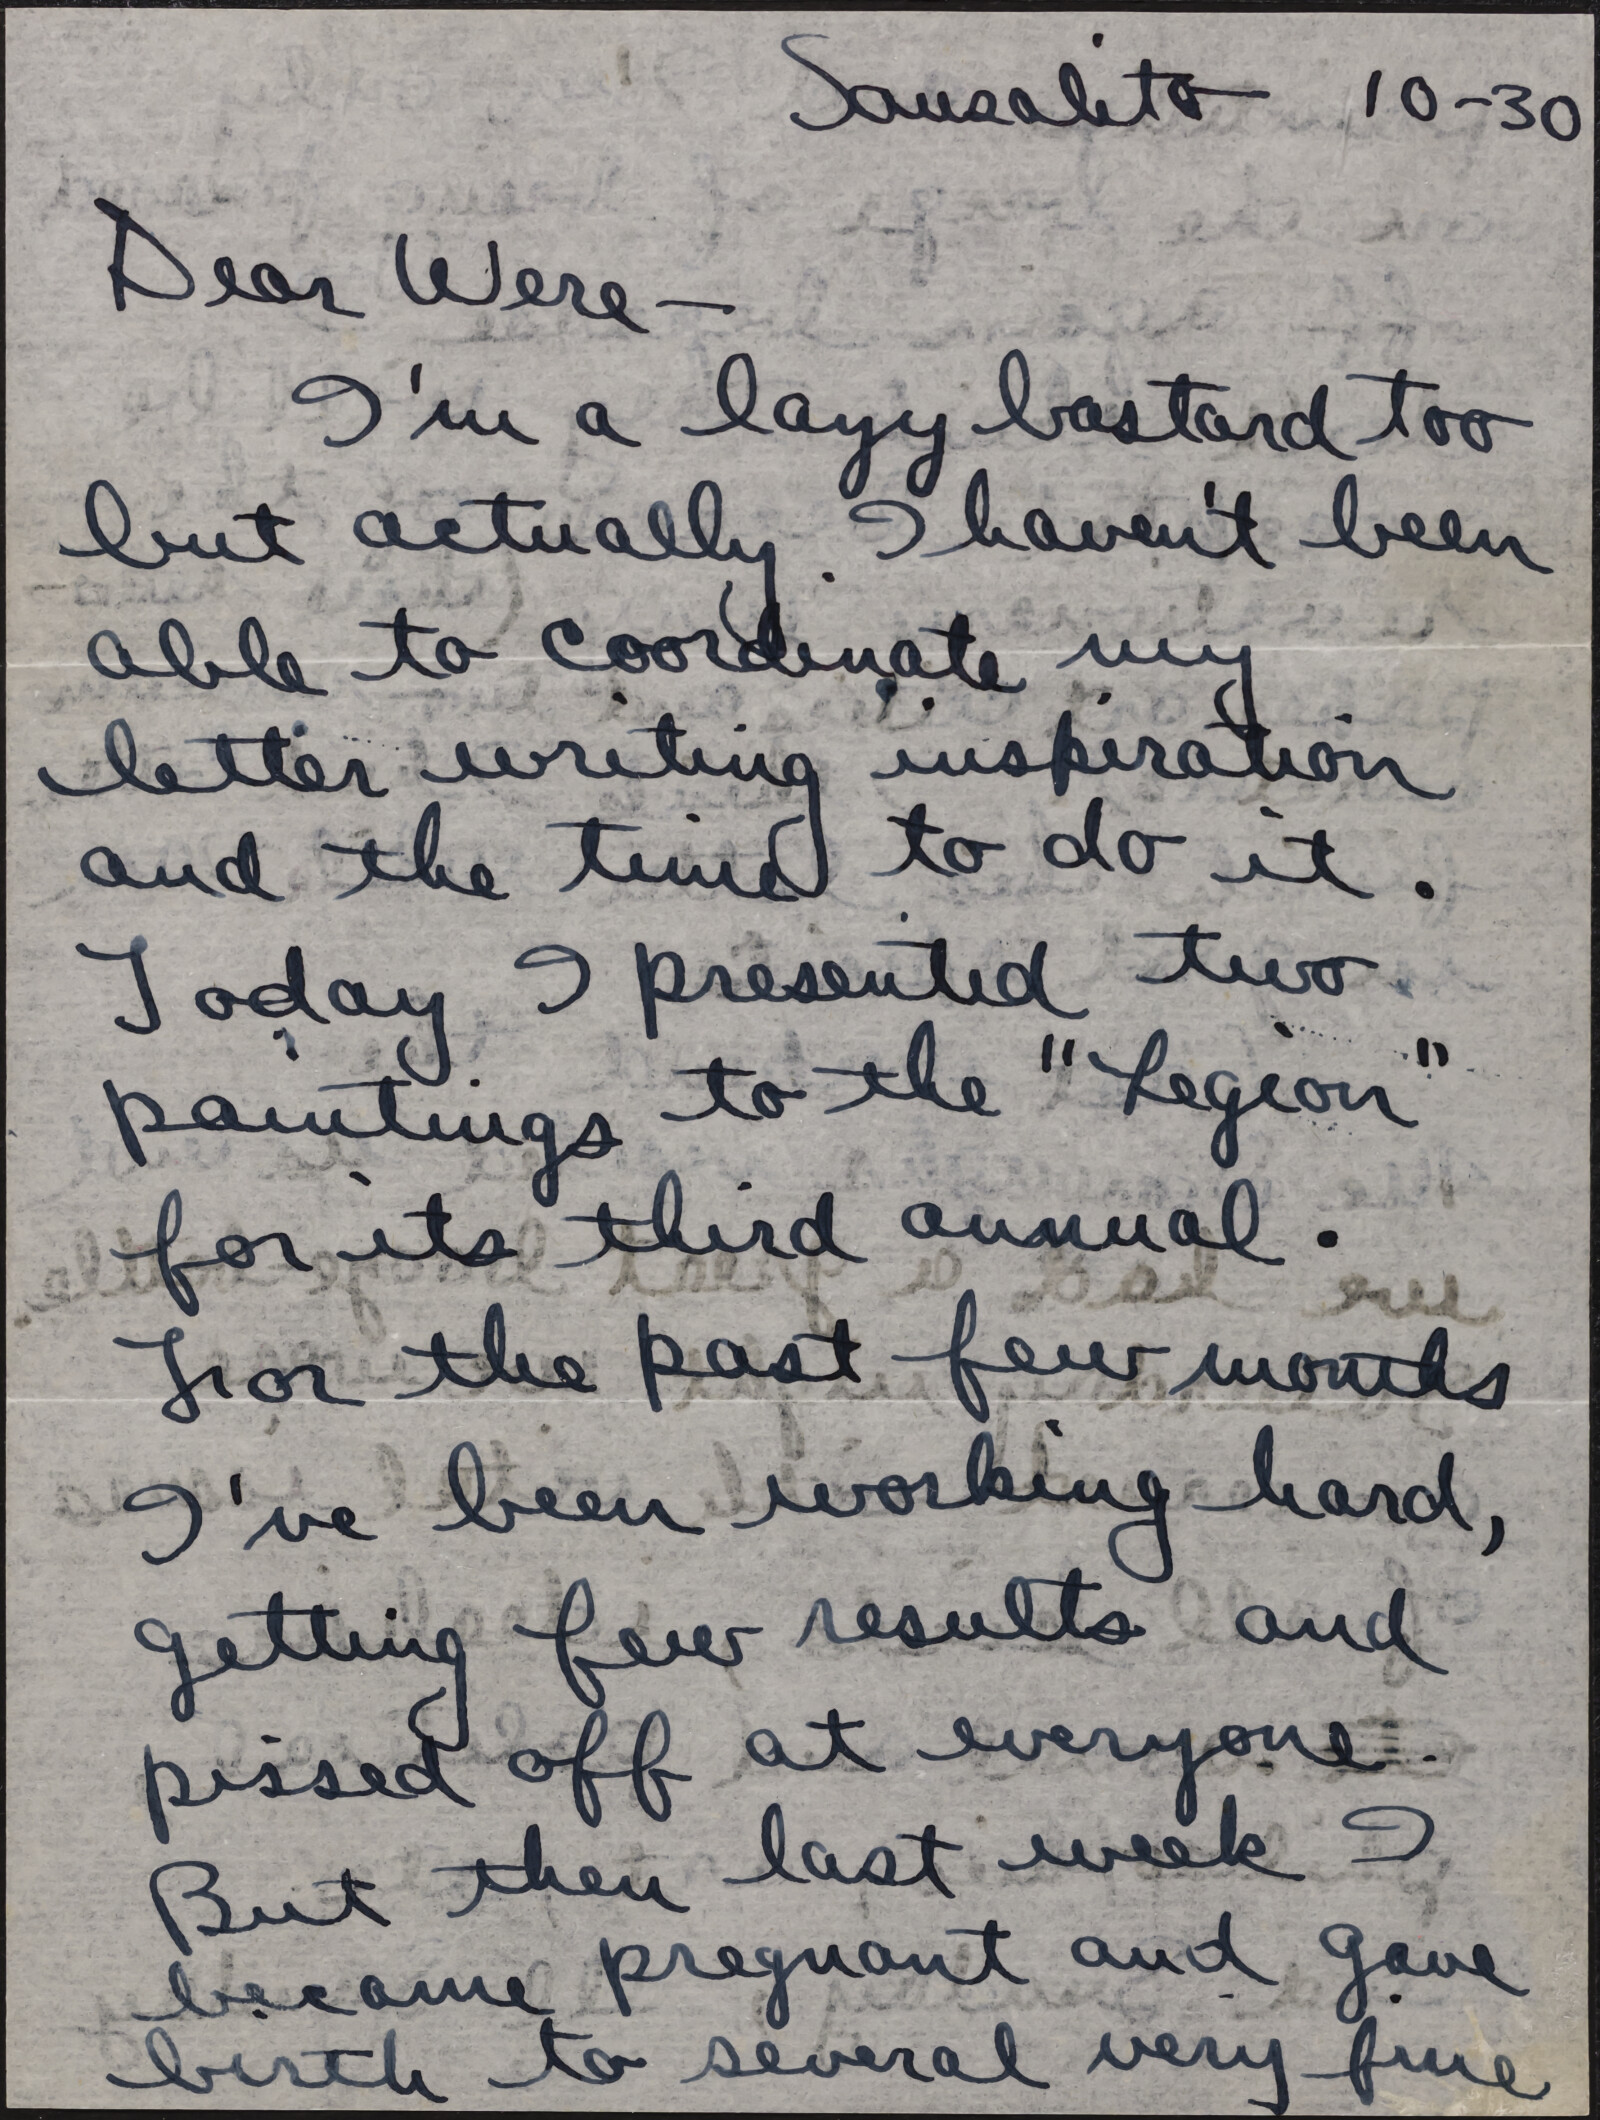 Sausalito 10-30
Dear Were—
I'm a lazy bastard too
but actually I haven't been
able to coordinate my
letter writing inspiration
and the time to do it.
Today I presented two
paintings to the "Legion"
for its third annual.
For the past few months
I've been working hard,
getting few results and
pissed off at everyone.
But then last week I
became pregnant and gave
birth to several very fine